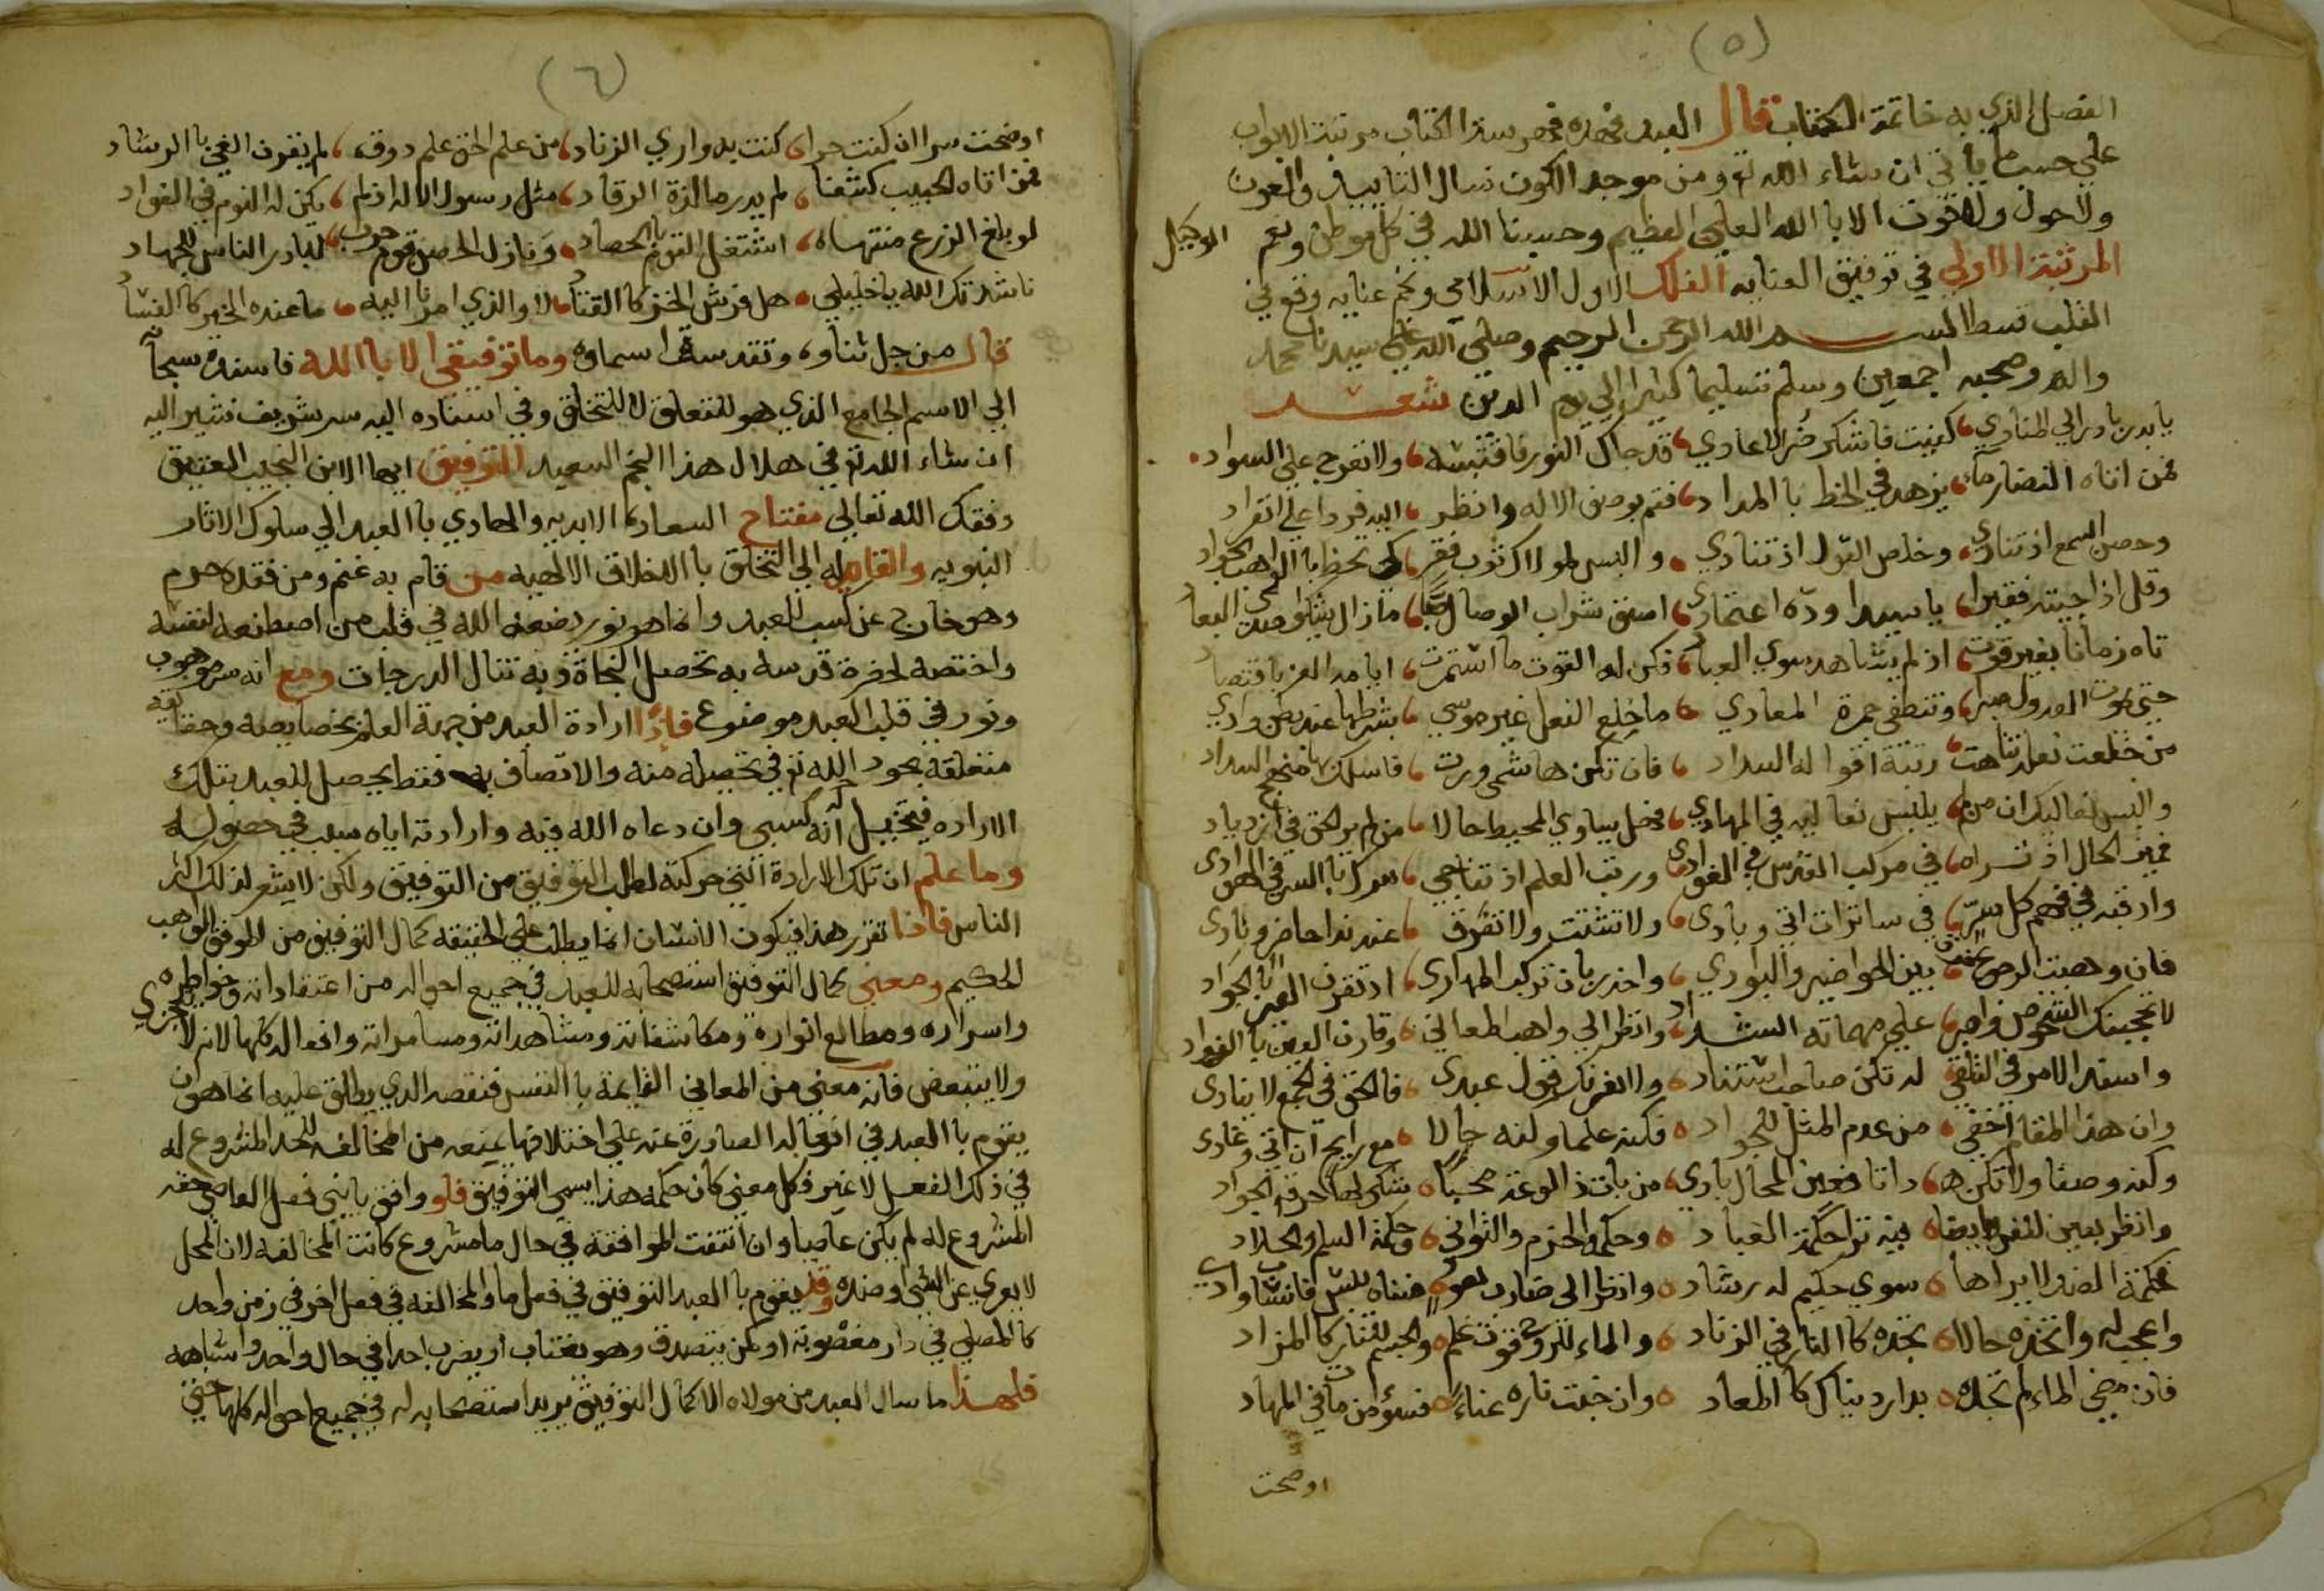 (٥)
الفصل الذي به خاتمة الكتاب قال العبد فهذه فهرسة الكتاب مرتبة الابواب
علي حسب ما ياتي ان شاء الله تع ومن موجد الكون نسال التاييد والعون
ولا حول ولا قوت الا باالله العلي العظيم وحسبنا الله في كل موطن ونعم الوكيل
المرتبة الاولي في توفيق العنايه الفلك الاول الاسلامي ونجم عنايه وقع في
القلب قسط بسم الله الرحمن الرحيم وصلي الله علي سيدنا محمد
واله وصحبه اجمعين وسلم تسليما كثيرا الي يوم الدين شعر
يا بدر بادر الي المنادي كفيت فاشكر ضر الاعادي قد جاك النور فاقتبسه ولا تعرج علي السواد
فمن اتاه النضار يزهد في الخط باالمداد فقم بوصف الاله وانظر اليه فردا علي انفراد
وحصن السمع اذ تنادي وخلص القول اذ تنادي والبس لمولاك ثوب فقر كي تحظ باالواهب الجواد
وقل اذا جيته فقيرا يا سيدا وده اعتمادي اسق شراب الوصال صبا ما زال يشكوا صدي البعاد
تاه زمانا بغير قوت اذ لم يشاهد سوي العباد فكن له القوت ما استمرت ايامه الغر باقتصاد
حتي يموت العدول صبرا وتنطفي جمرة المعادي ما خلع النعل غير موسي بشرطها عند بطن وادي
من خلعت نعله تناهت رتبة اقواله السداد فان تكن هاشمي ورث فاسلك بها منهج السداد
والبس نعاليك ان من لم يلبس نعاليه في المهادي فخل يساوي المحيط حالا من لم ير الحق في ازدياد
فميز الحال اذ تراه في مركب القدس في الغوادي ورتب العلم اذ تناجي سرك باالسر في الهوادي
وارقبه في فهم كل سر في ساترات اتي وبادي ولا تشتت ولا تفرق عند ندا حاضر وبادي
فان وهبت الرجوع بين الحواضر والبوادي واحذر بان تركب المهاري اذ تقرن العير باالجواد
لا تحجبنك الشخوص واصبر علي مهماته الشداد وانظر الي واهب المعاني وقارن العين باالفواد
واسند الامر في التلقي له تكن صاحب استناد ولا يغرنك قول عبدي فالحق في الجمع لا ينادي
وان هذا المقام اخفي من عدم المثل للجواد فكنه علما وكنه حالا مع رايح ان اتي وغادي
وكنه وصفا ولا تكن ها ذاتا فعين المحال بادي من بات ذا لوعة محبا شكي لها حرقة الجواد
وانظر بعين لنفس ايضا فيه ترا حكمة العباد وحكمة الحزم والتواني وحكمة السلم والجلاد
فحكمة الضد لا يراها سوي حكيم له رشاد وانظر الي ضارب بعود صفاة يبس فانشاوادي
واعجب له واتخذه حالا تجده كاالنار في الزناد والماء للروح قوت علم والجسم للنار كاالمزاد
فان مضي الماء لم تجده بدارد نياك كاالمعاد وان خبت ناره عناء فسوء من مات في المهاد
اوضحت
(٦)
اوضحت سرا ان كنت حرا كنت به واري الزناد من علم الحق علم ذوق لم يقرن الغي باالرشاد
فمن اتاه الحبيب كشفا لم يدر ما لذة الرقاد مثل رسول الاله اذ لم يكن له النوم في الفواد
لو بلغ الزرع منتهاه اشتغل القوم باالحصاد ونازل الحصن قوم حرب لبادر الناس للجهاد
ناشدتك الله يا خليلي هل فرش الخز كاالقتاد لا والذي امرنا اليه ما عنده الخير كاالفساد
قال من جل ثناوه وتقدست اسماوه وما توفيقي الا باالله فاسنده سبحانه
الي الاسم الجامع الذي هو للتعلق لا للتخلق وفي اسناده اليه سر شريف نشير اليه
ان شاء الله تع في هلال هذا النجم السعيد التوفيق ايها الابن النجيب العتيق
وفقك الله تعالي مفتاح السعادة الابديه والهادي باالعبد الي سلوك الاثار
النبويه والقايد له الي التخلق باالاخلاق الالهيه من قام به غنم ومن فقده حرم
وهو خارج عن كسب العبد وانما هو نور يضعه الله في قلب من اصطنعه لنفسه
واختصه لحضرة قدسه به تحصل النجاة وبه تنال الدرجات ومع انه سر موهوب
ونور في قلب العبد موضوع فاذا ارادة العبد من جهة العلم بخصايصه وحقايقه
متعلقة بجود الله تع في تحصيله منه والاتصاف به فقط يحصل للعبد بتلك
الاراده فيتخيل انه كسبي وان دعاه الله فيه وارادته اياه سبب في حصوله
وما علم ان تلك الارادة التي حركته لطلب التوفيق من التوفيق ولكن لا يشعر لذلك اكثر
الناس فاذا تقرر هذا فيكون الانسان انما يطلب علي الحقيقه كمال التوفيق من الموفق الواهب
الحكيم ومعني كمال التوفيق استصحابه للعبد في جميع احواله من اعتقاداته وخواطره
واسراره ومطالع انواره ومكاشفاته ومشاهداته ومسامراته وافعاله كلها لانه لا يتجزي
ولا يتبعض فانه معني من المعاني القايمة باالنفس فنقصه الذي يطلق عليه انما هو ان
يقوم باالعبد في افعاله الصادرة عنه علي اختلافها يمنعه من المخالفه للحد المشروع له
في ذلك الفعل لا غير فكل معني كان حكمه هذا يسمي التوفيق فلو وافق يا بني فعل العاصي حقه
المشروع له لم يكن عاصيا وان انتفت الموافقه في حال ما مشروع كانت المخالفه لان المحل
لا يعري عن الشي او ضده وقد يقوم باالعبد التوفيق في فعل ما والمخالفه في فعل اخر في زمن واحد
كاالمصلي في دار مغصوبة او كمن يتصدق وهو يغتاب او يضرب احدا في حال واحد واشباهه
فلهذا ما سال العبد من مولاه الا كمال التوفيق يريد استصحابه له في جميع احواله كلها حتي